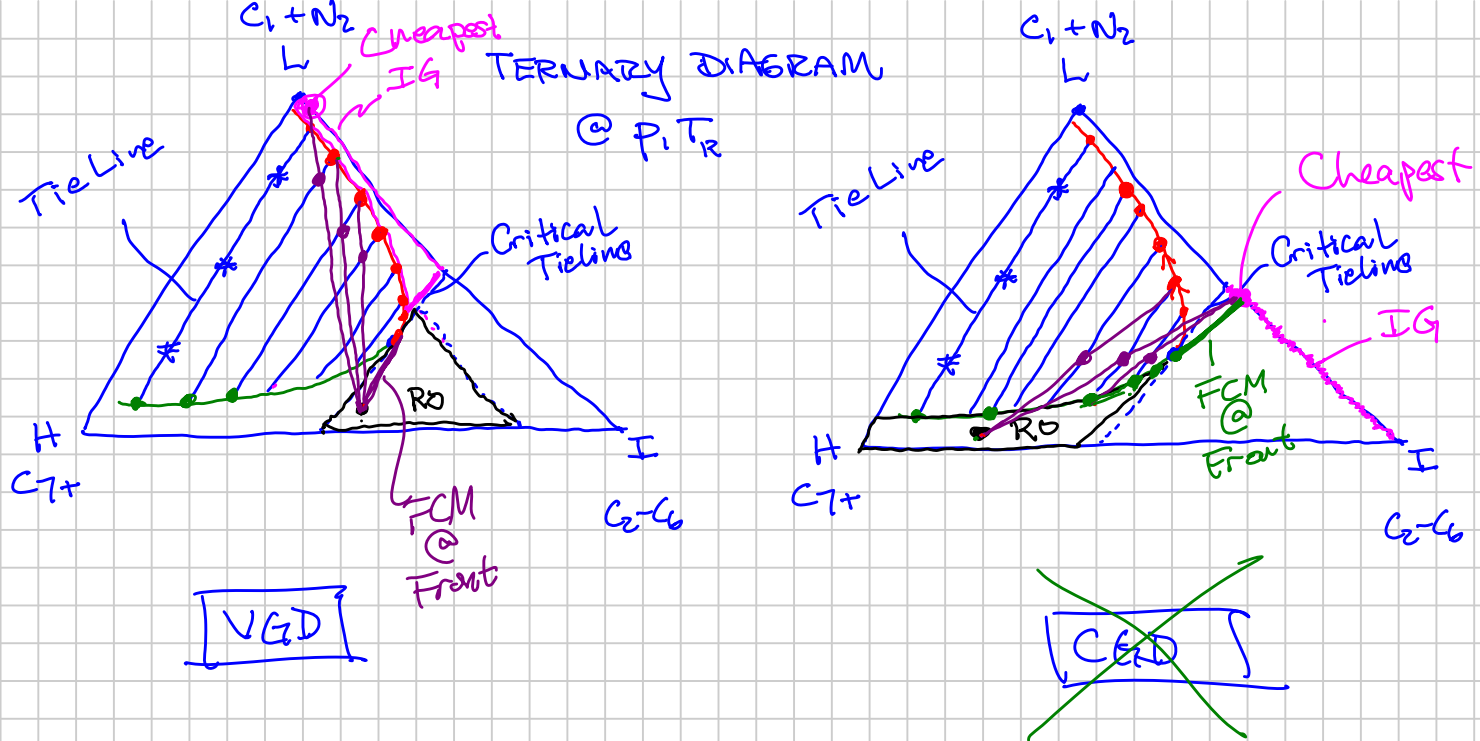 C₁+N₂
L
Cheapest
IG
TERNARY DIAGRAM
@ P, T_R
Tie Line
*
*
*
Critical
Tieline
H
C7+
RO
I
C₂-C₆
FCM
@
Front
VGD
C₁+N₂
L
Tie Line
*
*
*
Cheapest
Critical
Tieline
IG
FCM
@
Front
H
C7+
RO
I
C₂-C₆
CGD